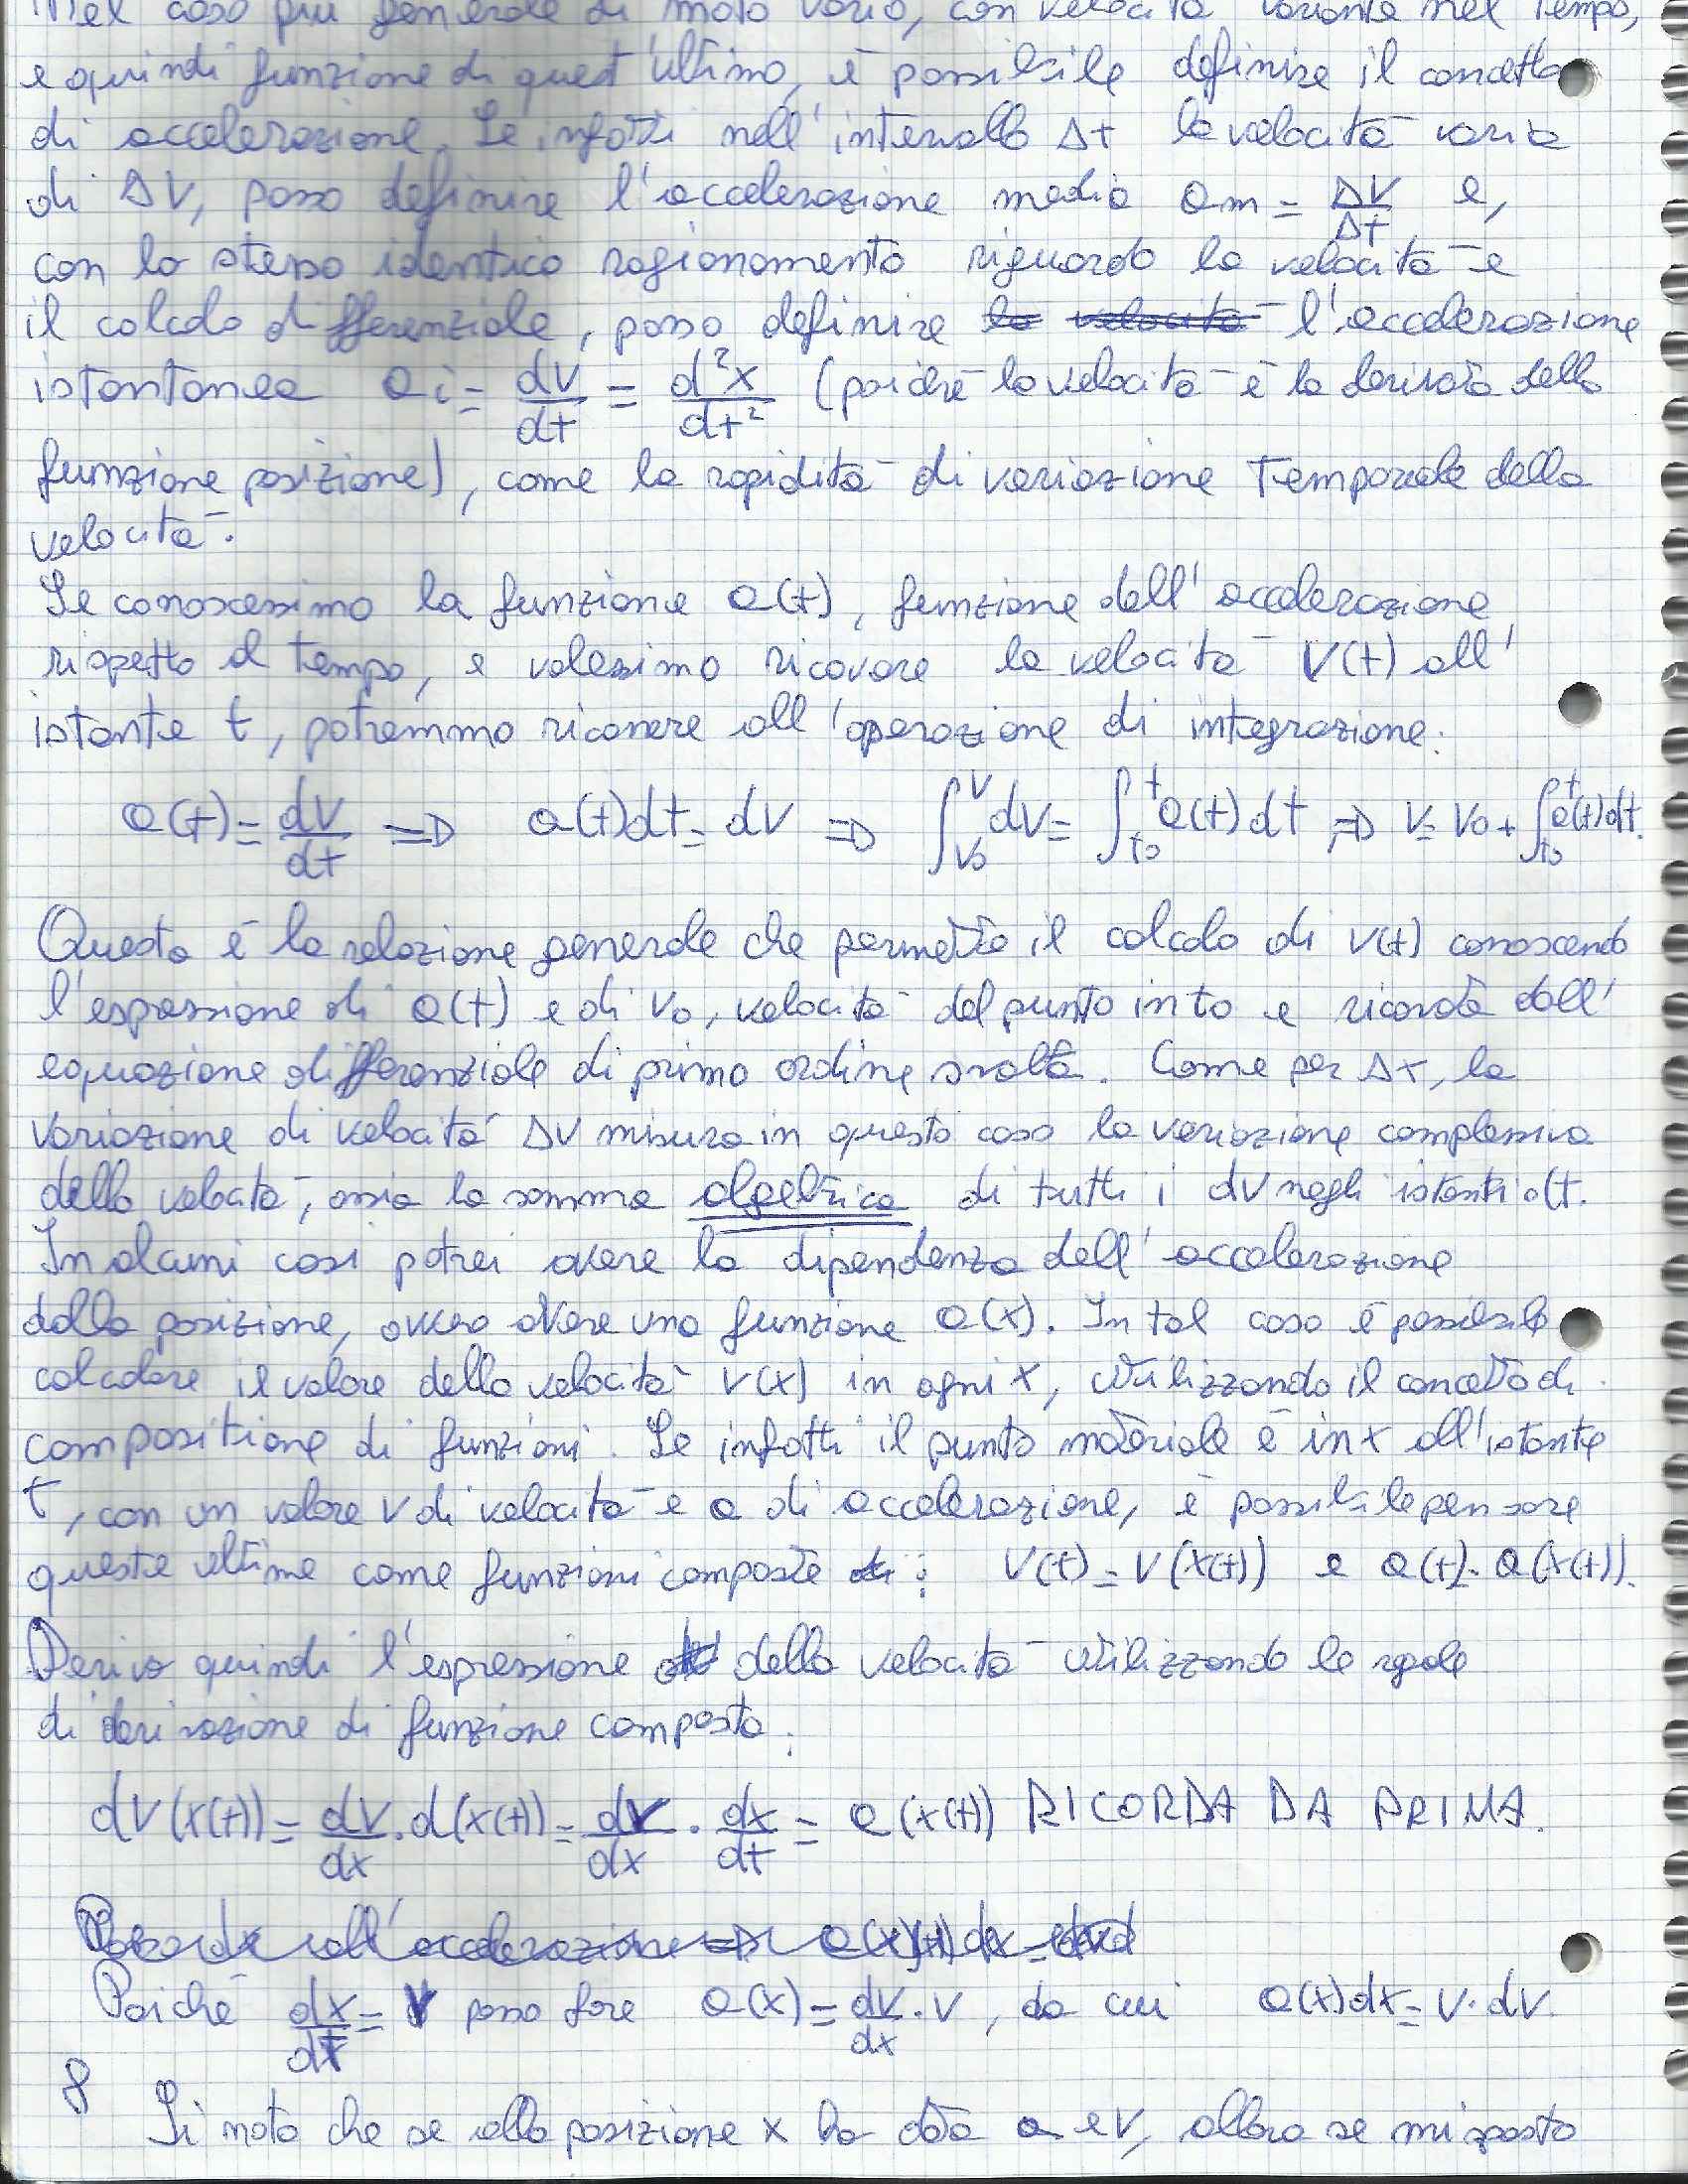 Nel caso più generale di moto vario, con velocità variante nel tempo,
e quindi funzione di quest'ultimo, è possibile definire il concetto
di accelerazione. Se infatti nell'intervallo Δt la velocità varia
di ΔV, posso definire l'accelerazione media am = ΔV/Δt e,
con lo stesso identico ragionamento riguardo la velocità e
il calcolo differenziale, posso definire la velocità l'accelerazione
istantanea ai = dv/dt = d²x/dt² (poiché la velocità è la derivata della
funzione posizione), come la rapidità di variazione temporale della
velocità.
Se conoscessimo la funzione a(t), funzione dell'accelerazione
rispetto al tempo, e volessimo ricavare la velocità V(t) all'
istante t, potremmo ricorrere all'operazione di integrazione:
a(t) = dv/dt => a(t)dt = dv => ∫_v0^v dv = ∫_t0^t a(t) dt => v = v0 + ∫_t0^t a(t)dt.
Questa è la relazione generale che permette il calcolo di v(t) conoscendo
l'espressione di a(t) e di v0, velocità del punto in t0 e ricavata dall'
equazione differenziale di primo ordine svolta. Come per Δx, la
variazione di velocità ΔV misura in questo caso la variazione complessiva
della velocità, ossia la somma algebrica di tutti i dv negli istanti dt.
In alcuni casi potrei avere la dipendenza dell'accelerazione
dalla posizione, ovvero avere una funzione a(x). In tal caso è possibile
calcolare il valore della velocità v(x) in ogni x, utilizzando il concetto di
composizione di funzioni. Se infatti il punto materiale è in x all'istante
t, con un valore v di velocità e a di accelerazione, è possibile pensare
queste ultime come funzioni composte di: V(t) = V(x(t)) e a(t) = a(x(t)).
Derivo quindi l'espressione della velocità utilizzando le regole
di derivazione di funzione composta:
dV(x(t)) = dv/dx · d(x(t)) = dv/dx · dx/dt = a(x(t)) RICORDA DA PRIMA.
Poiché dx/dt = v posso fare a(x) = dv/dx · v, da cui a(x)dx = v · dv.
8
Si nota che se alla posizione x ho data a e v, allora se mi sposto